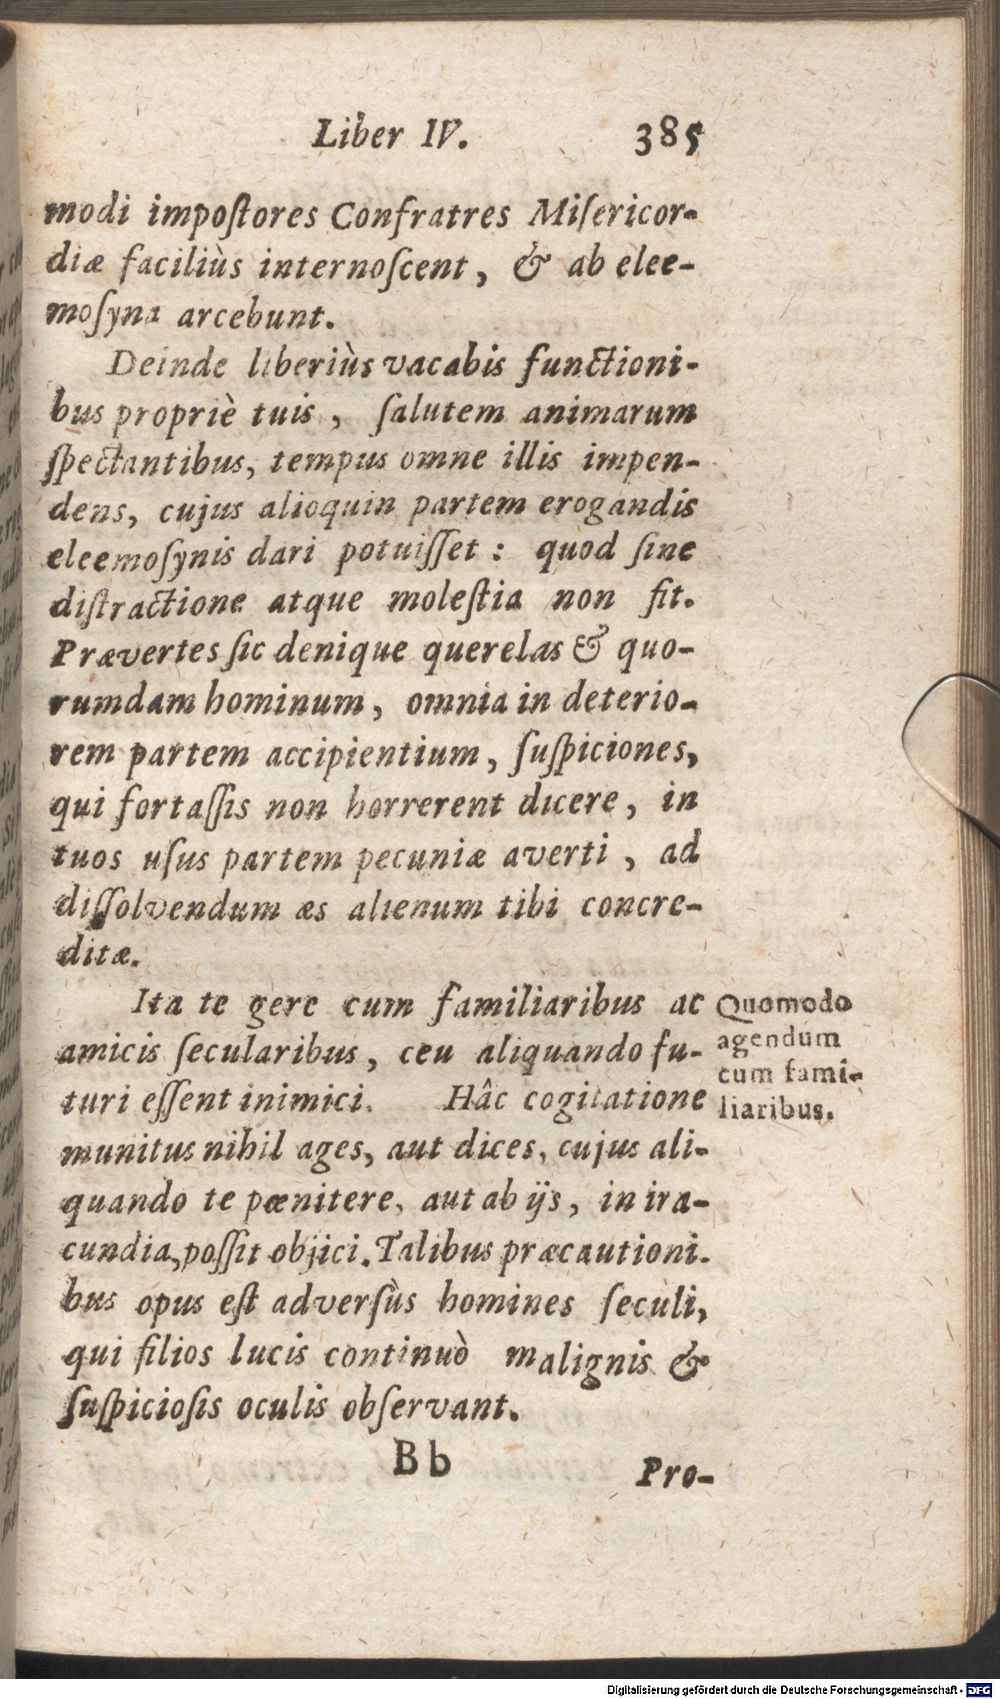 Liber IV. 385
modi impoſtores Confratres Miſericor-
diæ faciliùs internoſcent, & ab elee-
moſyna arcebunt.
Deinde liberiùs vacabis functioni-
bus propriè tuis, ſalutem animarum
ſpectantibus, tempus omne illis impen-
dens, cujus alioquin partem erogandis
eleemoſynis dari potuiſſet: quod ſine
diſtractione atque moleſtia non fit.
Prævertes ſic denique querelas & quo-
rumdam hominum, omnia in deterio-
rem partem accipientium, ſuſpiciones,
qui fortaſſis non horrerent dicere, in
tuos uſus partem pecuniæ averti, ad
diſſolvendum æs alienum tibi concre-
ditæ.
Ita te gere cum familiaribus ac
amicis ſecularibus, ceu aliquando fu-
turi eſſent inimici. Hâc cogitatione
munitus nihil ages, aut dices, cujus ali-
quando te pœnitere, aut ab ijs, in ira-
cundia, poſſit objici. Talibus præcautioni-
bus opus eſt adverſùs homines ſeculi,
qui filios lucis continuò malignis &
ſuſpicioſis oculis obſervant.
Quomodo
agendum
cum fami-
liaribus.
Bb Pro-
Digitalisierung gefördert durch die Deutsche Forschungsgemeinschaft - DFG